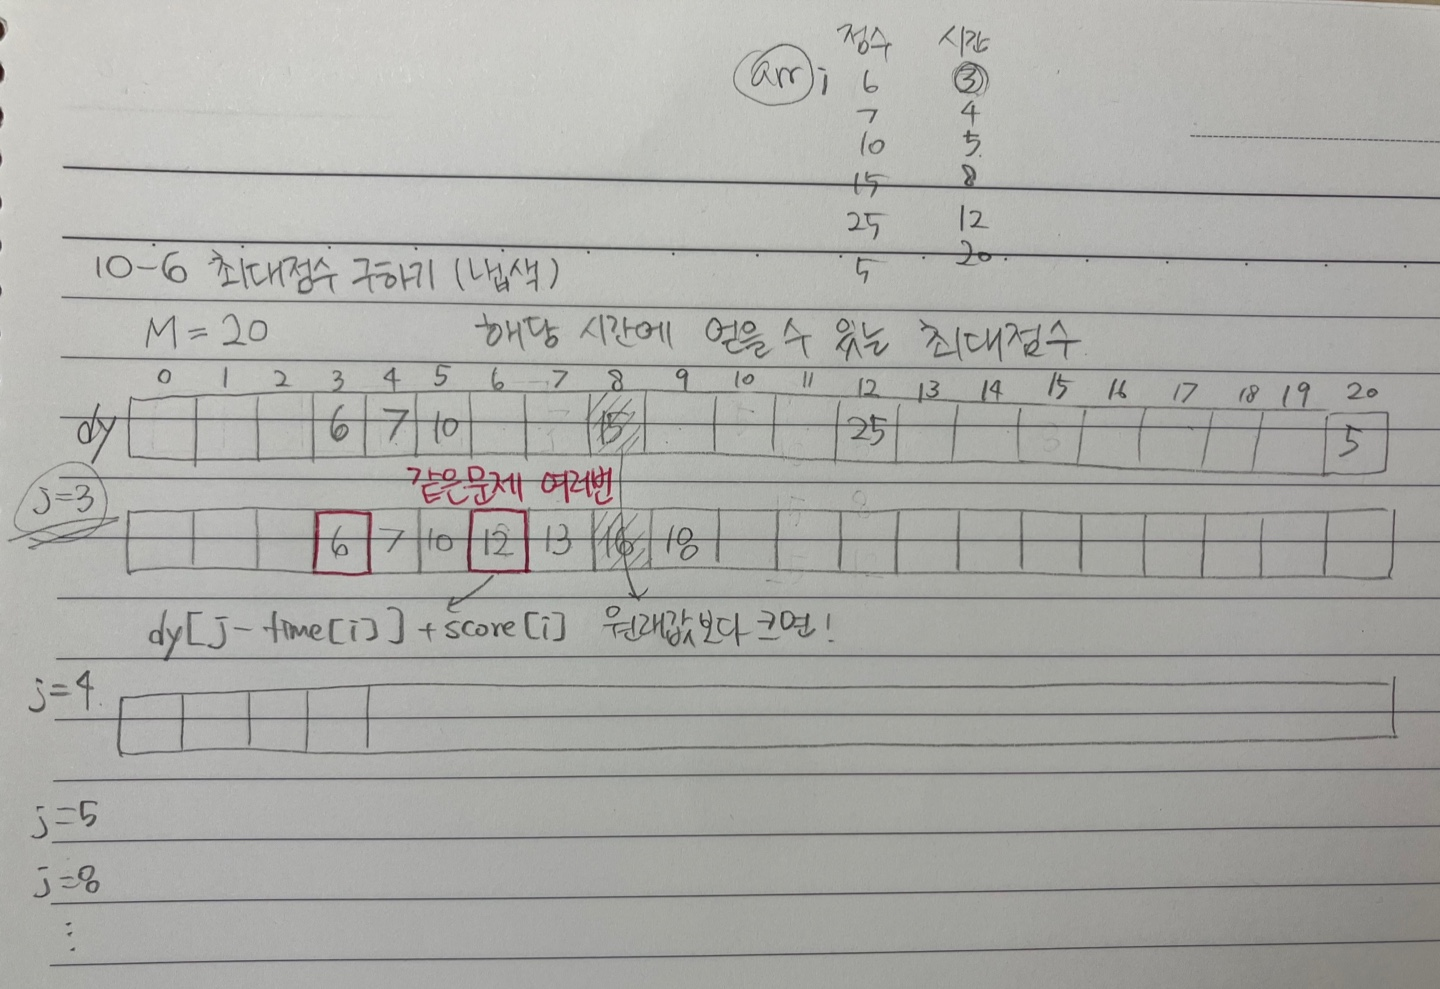 점수 시간
arr i 6 3
7 4
10 5
15 8
25 12
5 20
10-6 최대점수 구하기 (냅색)
M = 20 해당 시간에 얻을 수 있는 최대점수
0 1 2 3 4 5 6 7 8 9 10 11 12 13 14 15 16 17 18 19 20
dy 6 7 10 15 25 5
같은문제 여러번
j=3
6 7 10 12 13 16 18
dy[j-time[i]]+score[i] 원래값보다 크면!
j=4
j=5
j=8
⋮